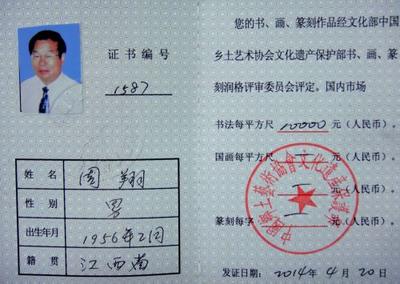 证书编号
1587
姓名 周翔
性别 男
出生年月 1956年2月
籍贯 江西省
您的书、画、篆刻作品经文化部中国
乡土艺术协会文化遗产保护部书、画、篆
刻润格评审委员会评定。国内市场
书法每平方尺 10000 元（人民币）。
国画每平方尺 元（人民币）。
元（人民币）。
篆刻每字 元（人民币）。
中国乡土艺术协会文化遗产保护部
发证日期：2014年4月20日